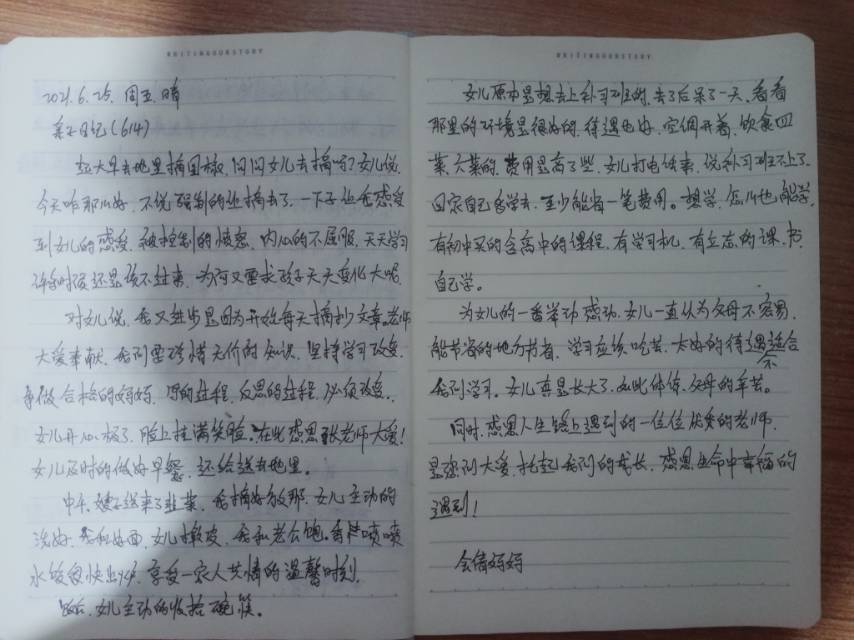 WRITINGOURSTORY
2021.6.25. 周五 晴
亲子日记(614)
去地里摘豆橛,问问女儿去摘吗?女儿说
今天咋那么好,不说强制的让摘去了,一下子让我感受
到女儿的感受,被控制的愤怒,内心的不屈服,天天学习
许多时候还是谈不起来,为何又要求孩子天天变化大呢
对女儿说,我又进步是因为开始每天摘抄文章。老师
大爱奉献,我们要珍惜无价的知识,坚持学习改变,
争做合格的妈妈,的过程,反思的过程,必须改变,
女儿开心极了,脸上挂满笑脸。在此感恩张老师大爱!
女儿及时的做好早餐,还给送去地里。
中午,嫂子送来了韭菜,我摘好放那,女儿主动的
洗好,我和好面,女儿擀皮,我和老公包。香喷喷
水饺很快出炉,享受一家人共情的温馨时刻,
饭后,女儿主动的收拾碗筷。
WRITINGOURSTORY
女儿原本是想去上补习班的,去了后呆了一天,看看
那里的环境是很好的,待遇也好,空调开着,饮食四
菜、六菜的,费用是高了些,女儿打电话来,说补习班不上了
回家自己自学去,至少能省一笔费用。想学,怎么也能学,
有初中买的含高中的课程,有学习机,有立志的课,书,
自己学。
为女儿的一番举动感动,女儿一直认为父母不容易,
能节省的地方节省,学习应该吃苦,太好的待遇不适合
我们学习。女儿真是长大了,如此体谅父母的辛苦。
同时,感恩人生路上遇到的一位位优秀的老师,
是您们大爱,托起我们的成长,感恩生命中幸福的
遇到!
会倩妈妈